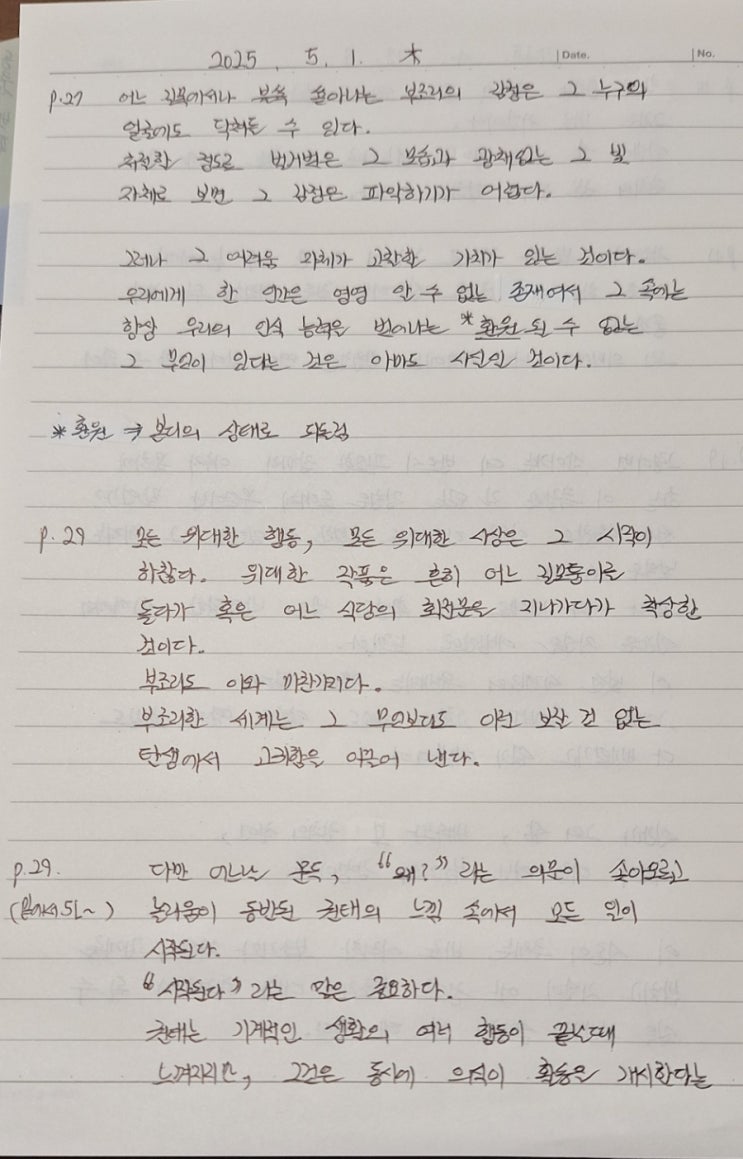 2025. 5. 1. 木 Date. No.
p.27 어느 길목에서나 불쑥 솟아나는 부조리의 감정은 그 누구의
얼굴에도 닥쳐들 수 있다.
처절할 정도로 벌거벗은 그 모습과 광채없는 그 빛
자체로 보면 그 감정은 파악하기가 어렵다.
그러나 그 어려움 자체가 고찰할 가치가 있는 것이다.
우리에게 한 인간은 영영 알 수 없는 존재여서 그 속에는
항상 우리의 인식 능력을 벗어나는 *환원 될 수 없는
그 무엇이 있다는 것은 아마도 사실일 것이다.
*환원 ⇒ 본디의 상태로 되돌림
p. 29 모든 위대한 행동, 모든 위대한 사상은 그 시작이
하찮다. 위대한 작품은 흔히 어느 길모퉁이를
돌다가 혹은 어느 식당의 회전문을 지나가다가 착상한
것이다.
부조리도 이와 마찬가지다.
부조리한 세계는 그 무엇보다도 이런 보잘 것 없는
탄생에서 고귀함을 이끌어 낸다.
p.29. 다만 어느날 문득, “왜?” 라는 의문이 솟아오르고
(밑에서 5L~) 놀라움이 동반된 권태의 느낌 속에서 모든 일이
시작된다.
“시작된다” 라는 말은 중요하다.
권태는 기계적인 생활의 여러 행동이 끝날때
느껴지지만, 그것은 동시에 의식이 활동을 개시한다는